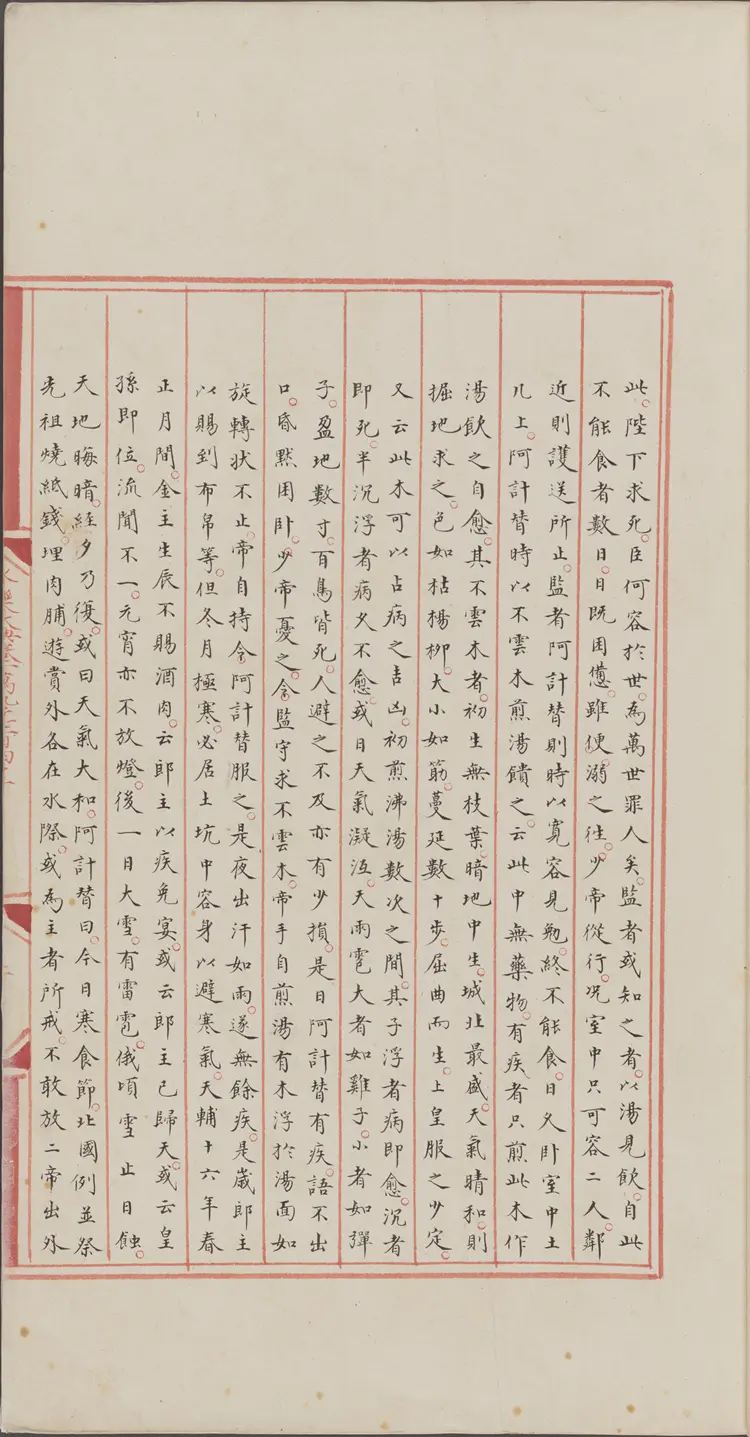 此。陛下求死。臣何容於世。為萬世罪人矣。監者或知之者。以湯見飲。自此
不能食者數日。日既困憊。雖便溺之往。少帝從行。况室中只可容二人。鄰
近則護送所止。監者阿計替則時以寬容見勉。終不能食。日久卧室中土
几上。阿計替時以不雲木煎湯饋之。云此中無藥物。有疾者只煎此木作
湯飲之自愈。其不雲木者。初生無枝葉。暗地中生。城北最盛。天氣晴和。則
掘地求之。色如枯楊柳。大小如筯。蔓延數十步。屈曲而生。上皇服之少定。
又云此木可以占病之吉凶。初煎沸湯數次之間。其子浮者病即愈。沉者
即死。半沉浮者病久不愈。或日天氣凝沍。天雨雹大者如雞子。小者如彈
子。盈地數寸。百鳥皆死。人避之不及亦有少損。是日阿計替有疾。語不出
口。昏默困卧。少帝憂之。令監守求不雲木。帝手自煎湯有木浮於湯面如
旋轉狀不止。帝自持令阿計替服之。是夜出汗如雨。遂無餘疾。是嵗郎主
以賜到布帛等。但冬月極寒。必居土坑中容身以避寒氣。天輔十六年春
正月間。金主生辰不賜酒肉。云郎主以疾免宴。或云郎主已歸天。或云皇
孫即位。流聞不一。元宵亦不放燈。後一日大雪。有雷雹。俄頃雪止日蝕。
天地晦暗。經夕乃復。或曰天氣大和。阿計替曰。今日寒食節。北國例並祭
先祖燒紙錢。埋肉脯。遊賞外各在水際。或為主者所戒。不敢放二帝出外